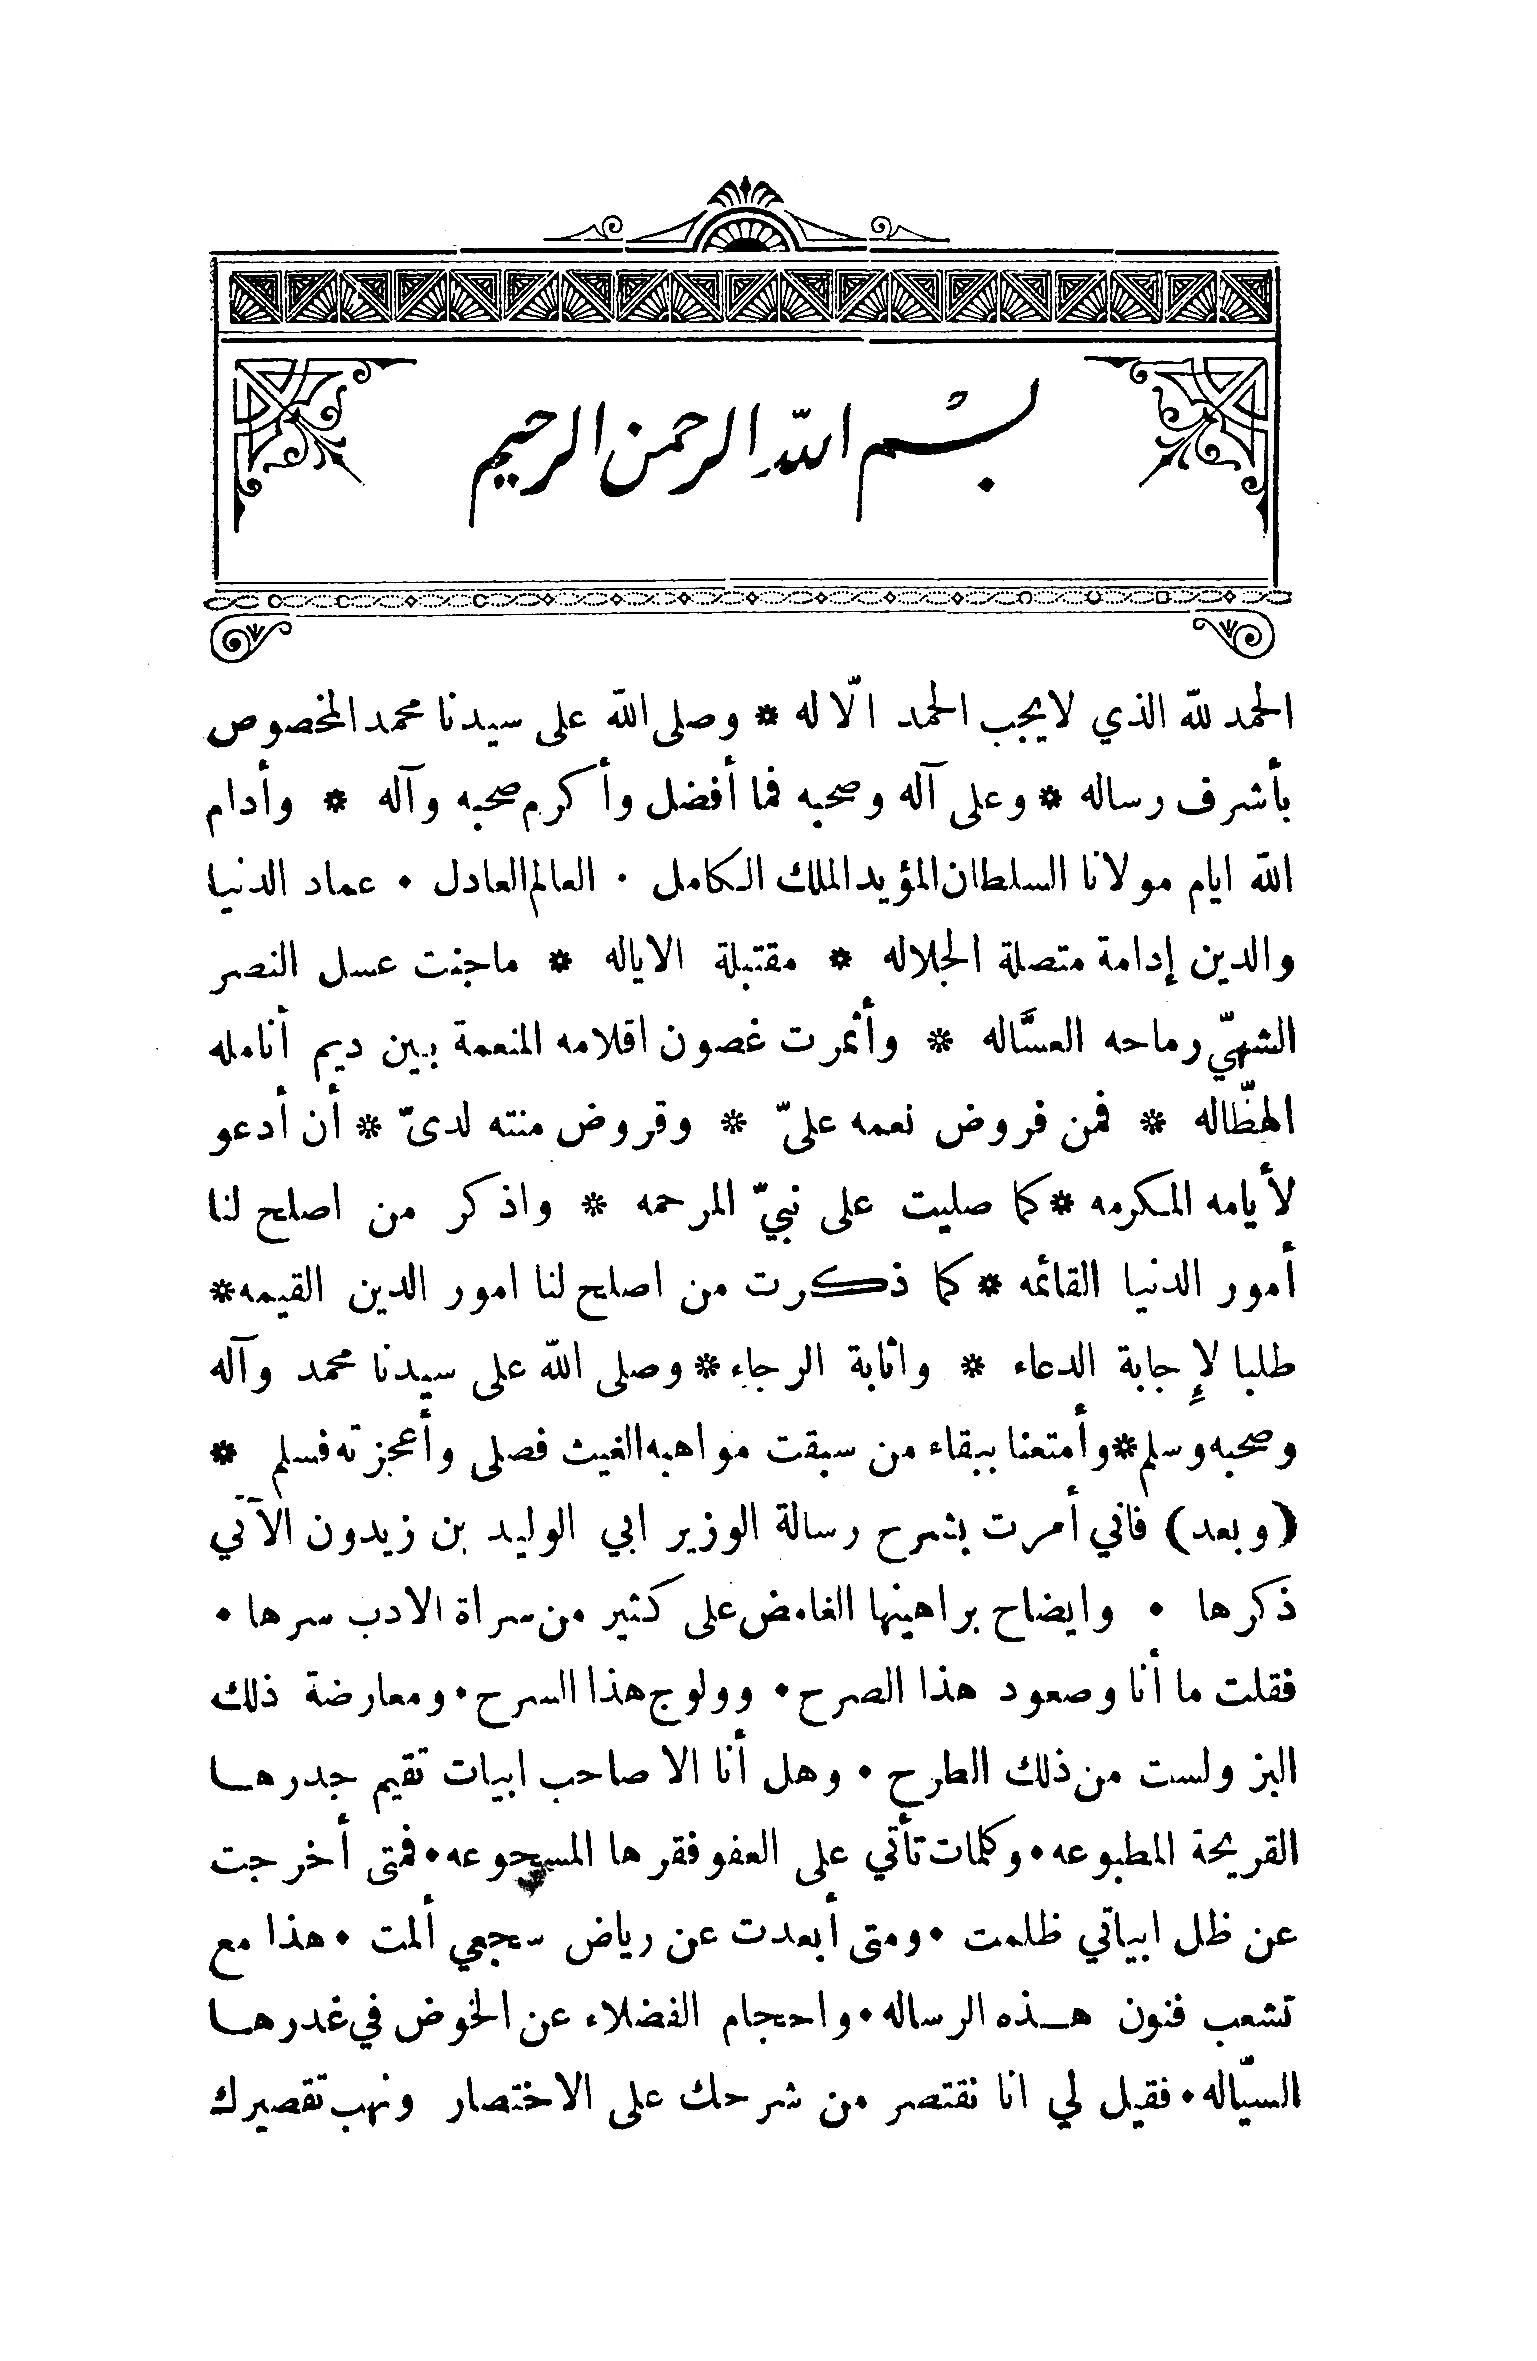 بسم الله الرحمن الرحيم
الحمد لله الذي لا يجب الحمد الّا له * وصلى الله على سيدنا محمد المخصوص
بأشرف رساله * وعلى آله وصحبه فما أفضل وأكرم صحبه وآله * وأدام
الله ايام مولانا السلطان المؤيد الملك الكامل · العالم العادل · عماد الدنيا
والدين إدامة متصلة الجلاله * مقتبلة الاياله * ماجنت عسل النصر
الشهيّ رماحه العسَّاله * وأثمرت غصون اقلامه المنعمة بين ديم أنامله
الهطّاله * فمن فروض نعمه عليّ * وقروض مننه لديّ * أن أدعو
لأيامه المكرمه * كما صليت على نبيّ المرحمه * واذكر من اصلح لنا
أمور الدنيا القائمه * كما ذكرت من اصلح لنا امور الدين القيمه *
طلبا لإجابة الدعاء * واثابة الرجاء * وصلى الله على سيدنا محمد وآله
وصحبه وسلم * وأمتعنا ببقاء من سبقت مواهبه الغيث فصلى وأعجزته فسلم *
(وبعد) فاني أمرت بشرح رسالة الوزير ابي الوليد بن زيدون الآتي
ذكرها · وايضاح براهينها الغامض على كثير من سراة الادب سرها ·
فقلت ما أنا وصعود هذا الصرح · وولوج هذا السرح · ومعارضة ذلك
البز ولست من ذلك الطرح · وهل أنا الا صاحب ابيات تقيم جدرها
القريحة المطبوعه · وكلمات تأتي على العفو فقرها المسجوعه · فمتى أخرجت
عن ظل ابياتي ظلمت · ومتى أبعدت عن رياض سجعي ألمت · هذا مع
تشعب فنون هذه الرساله · واحجام الفضلاء عن الخوض في غدرها
السيّاله · فقيل لي انا نقتصر من شرحك على الاختصار ونهب تقصيرك